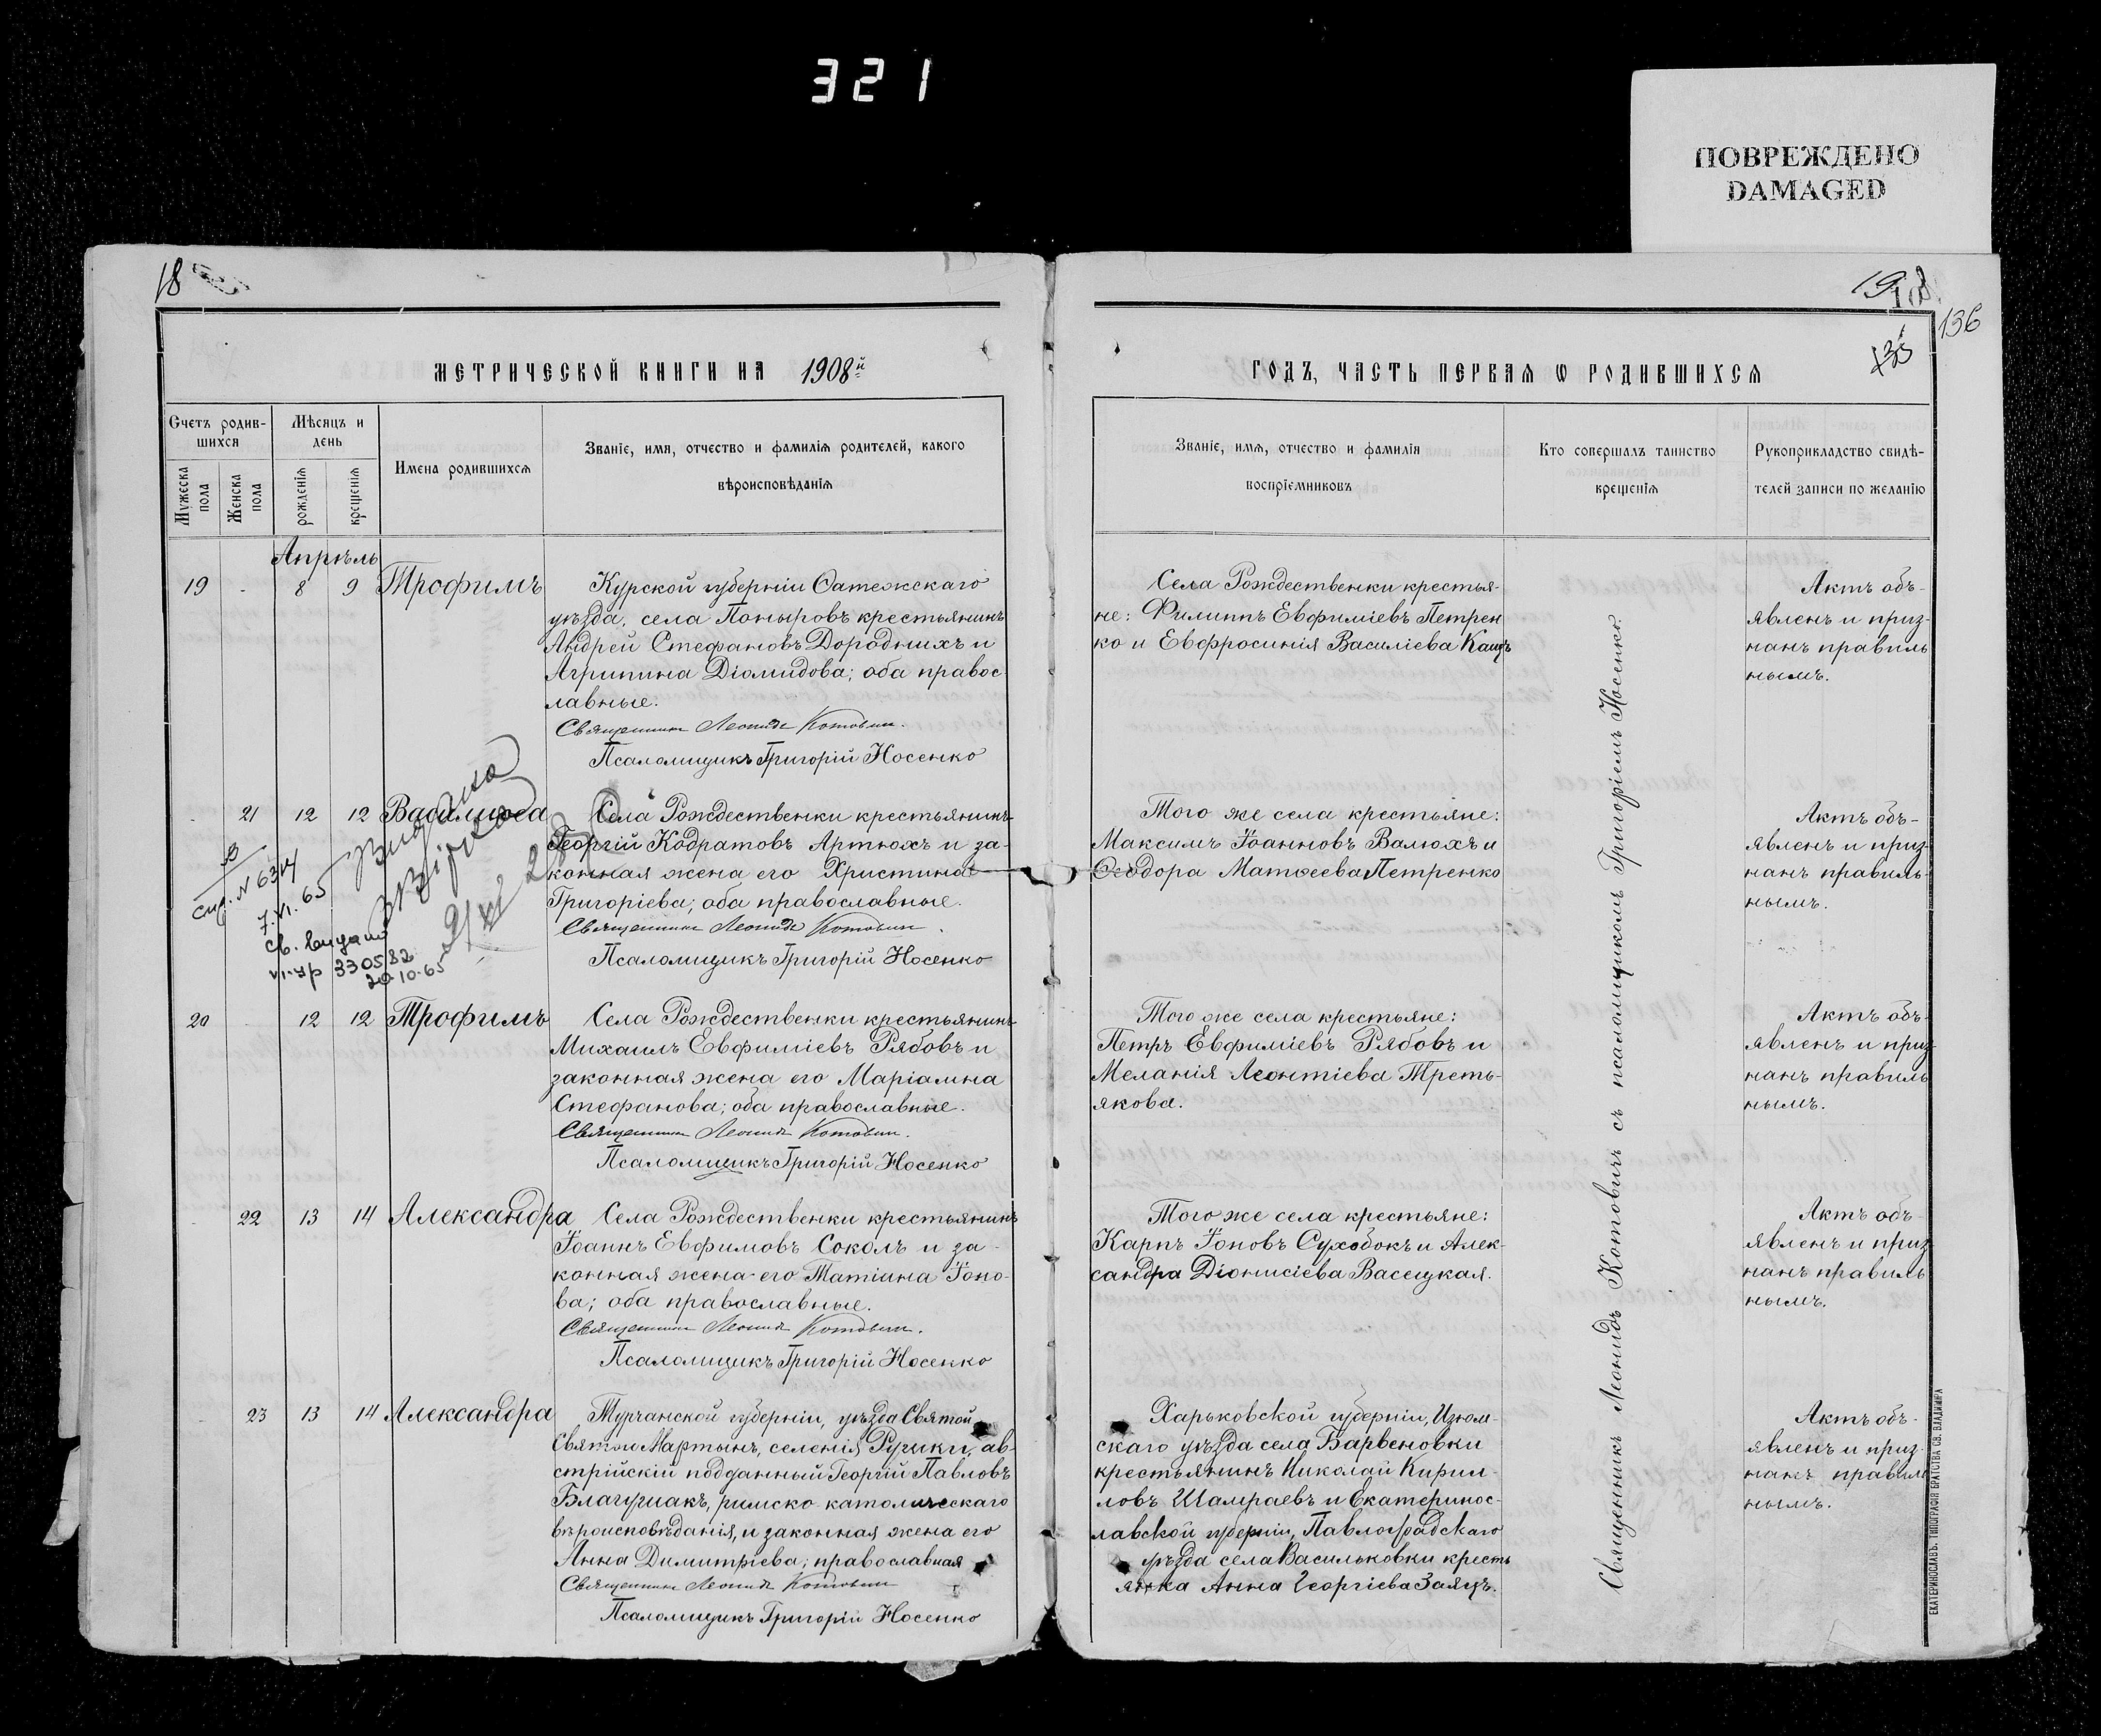 321
ПОВРЕЖДЕНО
DAMAGED
18
19
136
МЕТРИЧЕСКОЙ КНИГИ НА 1908й
ГОДЪ, ЧАСТЬ ПЕРВАЯ Ѡ РОДИВШИХСЯ
Счетъ родив-
шихся
Мѣсяцъ и
день
Мужеска
пола
Женска
пола
рожденія
крещенія
Имена родившихся
Званіе, имя, отчество и фамилія родителей, какого
вѣроисповѣданія
Званіе, имя, отчество и фамилія
воспріемниковъ
Кто совершалъ таинство
крещенія
Рукоприкладство свидѣ-
телей записи по желанію
Апрѣль
19 - 8 9 Трофимъ
Курской губерніи Фатежскаго
уѣзда, села Поныровъ крестьянинъ
Андрей Стефановъ Дородныхъ и
Агрипина Діомидова; оба правос
лавные.
Священникъ Леонидъ Котовичъ.
Псаломщикъ Григорій Носенко
Села Рождественки крестья-
не: Филиппъ Евфиміевъ Петрен
ко и Евфросинія Василіева Кацъ
Актъ объ-
явленъ и приз-
нанъ правиль
нымъ.
- 21 12 12 Василисса
Села Рождественки крестьянинъ
Георгій Кодратовъ Артюхъ и за-
конная жена его Христина
Григоріева; оба православные.
Священникъ Леонидъ Котовичъ.
Псаломщикъ Григорій Носенко
7.VI.65
330582
20.10.65
Того же села крестьяне:
Максимъ Іоанновъ Валюхъ и
Ѳеодора Матѳеева Петренко
Актъ объ-
явленъ и приз-
нанъ правиль-
нымъ.
20 - 12 12 Трофимъ
Села Рождественки крестьянинъ
Михаилъ Евфиміевъ Рябовъ и
законная жена его Маріамна
Стефанова; оба православные.
Священникъ Леонидъ Котовичъ.
Псаломщикъ Григорій Носенко
Того же села крестьяне:
Петръ Евфиміевъ Рябовъ и
Меланія Леонтіева Треть-
якова.
Актъ объ-
явленъ и приз-
нанъ правиль
нымъ.
- 22 13 14 Александра
Села Рождественки крестьянинъ
Іоаннъ Евфимовъ Соколъ и за-
конная жена его Татіана Іоно-
ва; оба православные.
Священникъ Леонидъ Котовичъ.
Псаломщикъ Григорій Носенко
Того же села крестьяне:
Карпъ Іоновъ Сухобокъ и Алек-
сандра Діонисіева Васецкая.
Актъ объ-
явленъ и приз
нанъ правиль
нымъ.
- 23 13 14 Александра
Турчанской губерніи, уѣзда Святой
Святои Мартынъ, селенія Ручики, ав-
стрійскій подданный Георгій Павловъ
римско католическаго
вѣроисповѣданія, и законная жена его
Анна Димитріева; православная
Священникъ Леонидъ Котовичъ
Псаломщикъ Григорій Носенко
Харьковской губерніи, Изюм-
скаго уѣзда села Барвеновки
крестьянинъ Николай Кирил-
ловъ Шамраевъ и Екатеринос-
лавской губерніи, Павлоградскаго
уѣзда села Васильковки кресть
янка Анна Георгіева Заяцъ.
Актъ объ-
явленъ и приз-
нанъ правиль
нымъ.
Священникъ Леонидъ Котовичъ съ псаломщикомъ Григоріемъ Носенко.
ЕКАТЕРИНОСЛАВЪ. ТИПОГРАФІЯ БРАТСТВА СВ. ВЛАДИМІРА